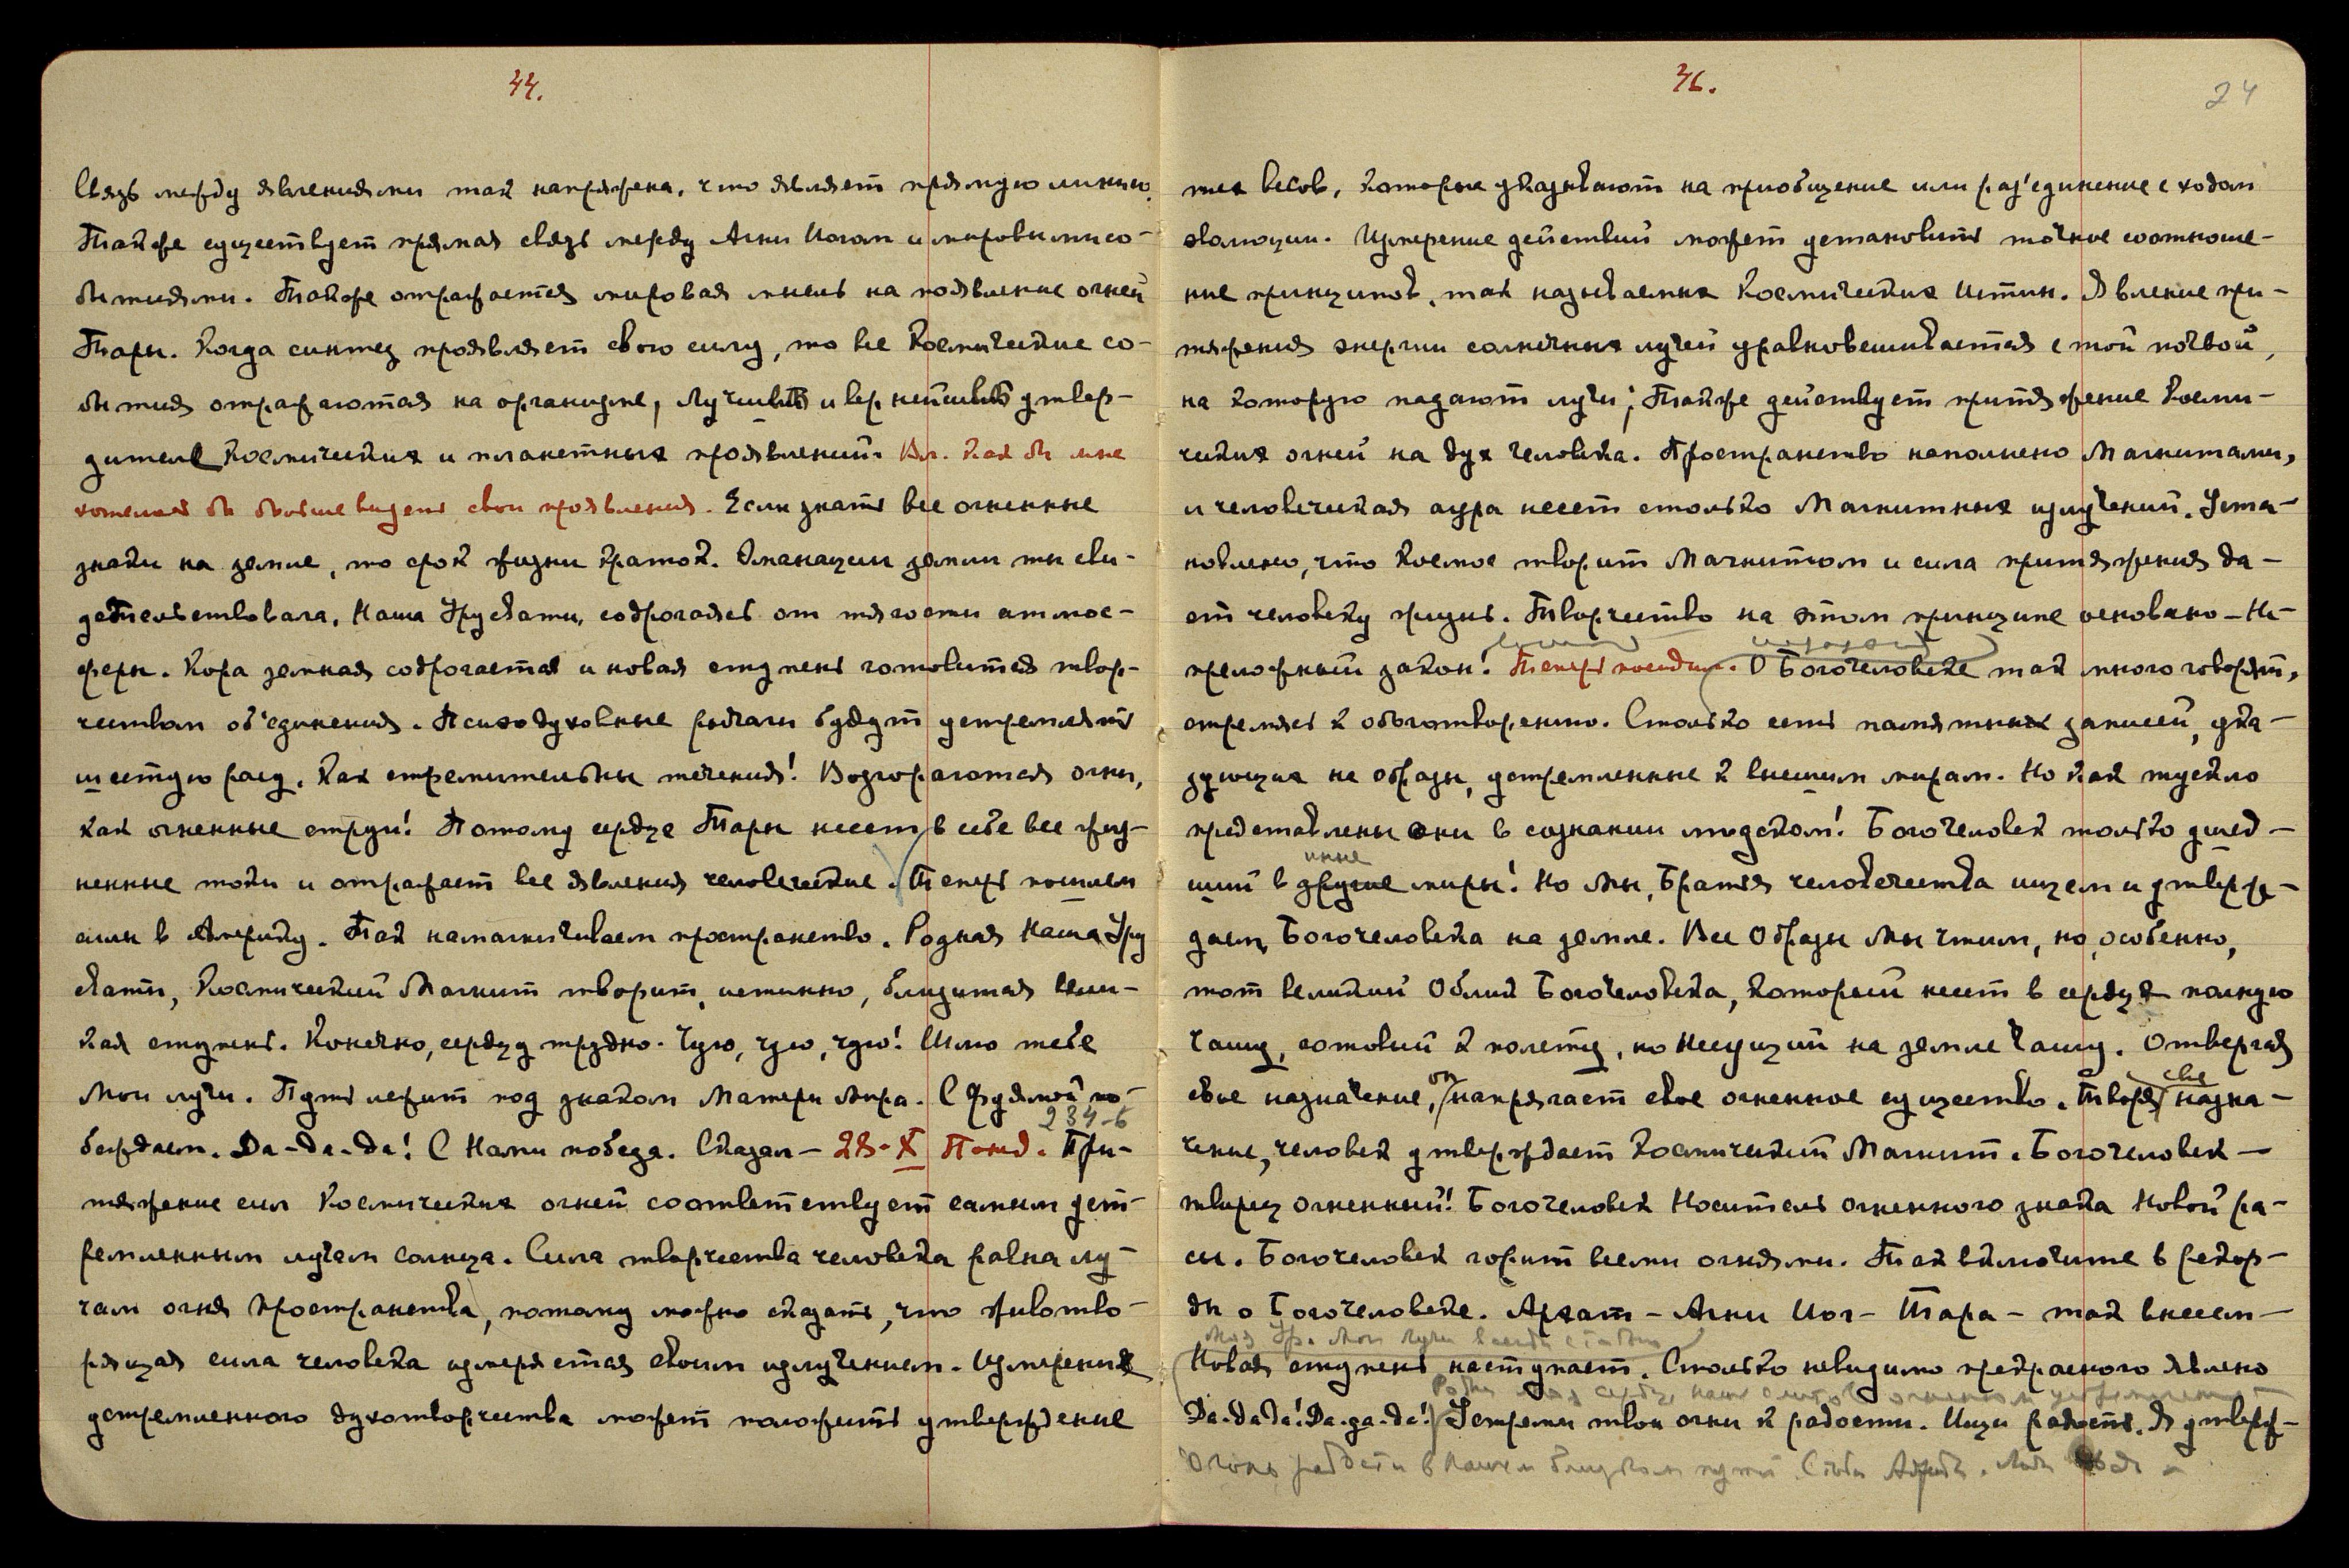 44.
Связь между явлениями так напряжена, что являет прямую линию.
Также существует прямая связь между Агни Иогом и мировыми со-
бытиями. Также отражается мировая мысль на появление огней
Тары. Когда синтез проявляет свою силу, то все Космические со-
бытия отражаются на организме, лучший и вернейший утвер-
дитель Космических и планетных проявлений. Вл. Как бы мне
хотелось бы больше видеть свои проявления. Если знать все огненные
знаки на земле, то срок жизни краток. Эманации земли ты сви-
детельствовала, Наша Урусвати, содрогаясь от тягости атмос-
феры. Кора земная содрогается и новая ступень готовится твор-
чеством об'единения. Психодуховные рычаги будут устремлять
шестую расу. Как стремительны течения! Возгораются огни,
как огненные струи! Потому сердце Тары несет в себе все жиз-
ненные токи и отражает все явления человеческие. Теперь пошлем
силы в Америку. Так намагничиваем пространство. Родная Наша Уру
свати, Космический Магнит творит, истинно, близится вели-
кая ступень. Конечно, сердцу трудно. Чую, чую, чую! Шлю тебе
Мои лучи. Путь лежит под знаком Матери Мира. С Фуямой по-
234-6
беждаем. Да-да-да! С Нами победа. Сказал — 28-X Понед. При-
тяжение сил Космических огней соответствует самым уст-
ремленным лучам солнца. Сила творчества человека равна лу-
чам огня Пространства, потому можно сказать, что животво-
рящая сила человека измеряется своим излучением. Измерения
устремленного духотворчества может положить утверждение
46.
24
тех весов, которые указывают на приобщение или раз'единение с ходом
эволюции. Измерение действий может установить точное соотноше-
ние принципов, так называемых Космических Истин. Явление при-
тяжения энергии солнечных лучей уравновешивается с той почвой,
на которую падают лучи; Также действует притяжение Косми-
ческих огней на дух человека. Пространство наполнено Магнитами,
и человеческая аура несет столько Магнитных излучений. Уста-
новлено, что Космос творит Магнитом и сила притяжения да-
ет человеку жизнь. Творчество на этом принципе основано — Не-
преложный закон! Теперь последнее. О Богочеловеке так много говорят,
стремясь к обоготворению. Столько есть памятных записей, ука-
зующих на образы, устремленные к высшим мирам. Но как тускло
представлены они в сознании людском! Богочеловек только ушед-
иные
ший в другие миры! Но Мы, Братья человечества ищем и утверж-
даем Богочеловека на земле. Все Образы Мы чтим, но, особенно,
тот великий Облик Богочеловека, который несет в сердце полную
Чашу, готовый к полету, но Несущий на земле Чашу. Отвергая
он
све
свое назначение, напрягает свое огненное существо. Творя назна-
чение, человек утверждает Космический Магнит. Богочеловек —
творец огненный! Богочеловек Носитель огненного знака Новой ра-
сы. Богочеловек горит всеми огнями. Так включите в рекор-
ды о Богочеловеке. Архат — Агни Иог — Тара — так внесем —
Моя Ур. Мои лучи всегда с тобою
Новая ступень наступает. Столько невидимо прекрасного явлено
Да-да-да! Да-да-да! Устреми твои огни к радости. Ищи радость. Я утверж-
Огонь радости в Нашем